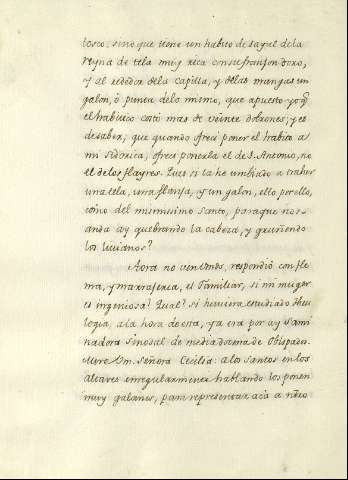 tosco, sino que tiene un habito de sayal de la
Reyna de tela muy rica con su franjon de oro,
y al rededor de la Capilla, y de las mangas un
galon, ò punta de lo mismo, que apuesto yo q
el habitico costò mas de veinte doblones; y es
de saber, que quando ofreci poner el habito a
mi Sidonica, ofreci ponerla el de S. Antonio, no
el de los flayres. Pues si la he embiado a traher
una tela, una flanja, y un galon, ello por ello,
como del mismissimo Santo, para que nos
anda ay quebrando la cabeza, y gruñendo
los livianos?
Aora no ven Vmds, respondiò con fle
ma, y el Familiar, si mi muger
es ingeniosa? Qual? si huviera estudiado Theo
logia, a la hora de esta, ya era por ay Sami
nadora Sinodal de media docena de Obispados.
Mire Vm. Señora Cecilia: a los Santos en los
altares irregularmente hablando los ponen
muy galanes, para representar acà a